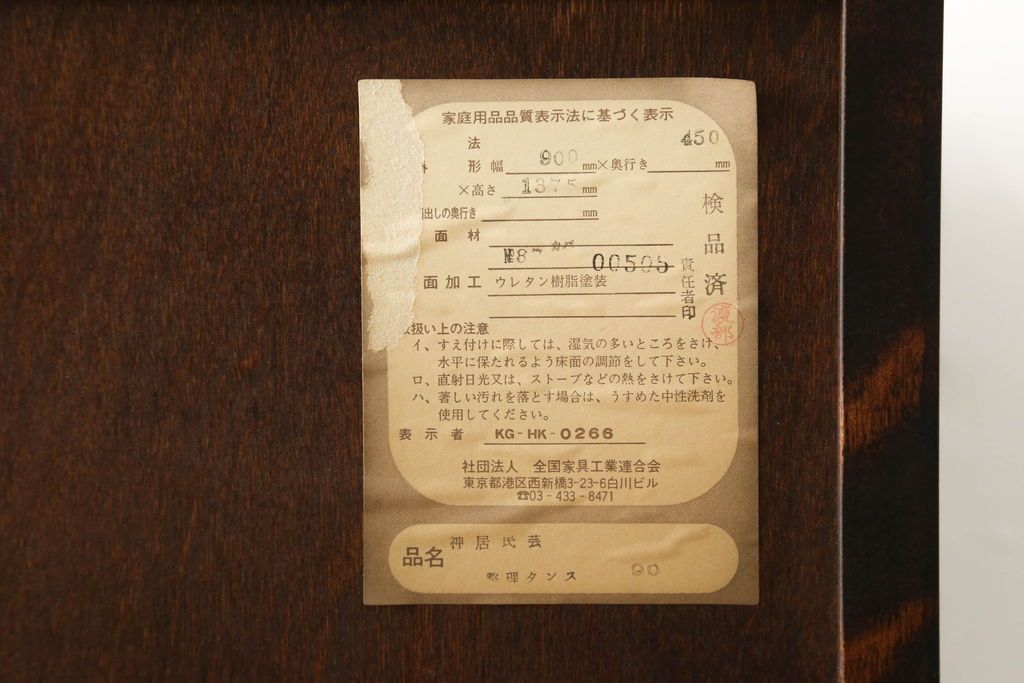 家庭用品品質表示法に基づく表示
法
形 幅 900 mm×奥行き 450 mm
×高さ 1375 mm
出しの奥行き mm
面 材 カバ
№8 00505
面加工 ウレタン樹脂塗装
検品済
責任者印
渡部
扱い上の注意
イ、すえ付けに際しては、湿気の多いところをさけ、
水平に保たれるよう床面の調節をして下さい。
ロ、直射日光又は、ストーブなどの熱をさけて下さい。
ハ、著しい汚れを落とす場合は、うすめた中性洗剤を
使用してください。
表示者 KG-HK-0266
社団法人 全国家具工業連合会
東京都港区西新橋3-23-6白川ビル
☎03-433-8471
品名 神居民芸
整理タンス 90